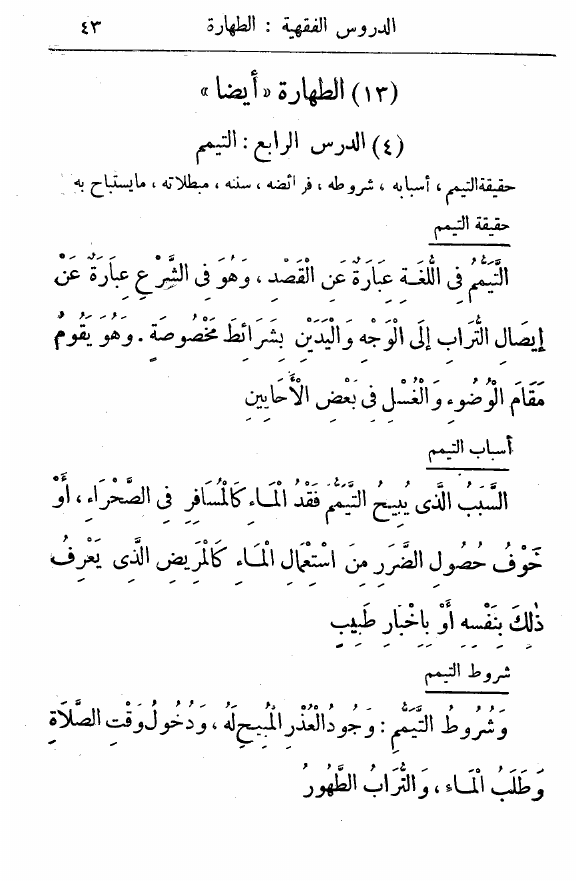 الدروس الفقهية : الطهارة ٤٣
(١٣) الطهارة «أيضا»
(٤) الدرس الرابع : التيمم
حقيقة التيمم ، أسبابه ، شروطه ، فرائضه ، سننه ، مبطلاته ، مايستباح به
حقيقة التيمم
التَّيَمُّمُ فِى اللُّغَةِ عِبَارَةٌ عَنِ الْقَصْدِ ، وَهُوَ فِى الشَّرْعِ عِبَارَةٌ عَنْ
إِيصَالِ التُّرَابِ إِلَى الْوَجْهِ وَالْيَدَيْنِ بِشَرَائِطَ مَخْصُوصَةٍ . وَهُوَ يَقُومُ
مَقَامَ الْوُضُوءِ وَالْغُسْلِ فِى بَعْضِ الْأَحَايِينِ
أسباب التيمم
السَّبَبُ الَّذِى يُبِيحُ التَّيَمُّمَ فَقْدُ الْمَاءِ كَالْمُسَافِرِ فِى الصَّحْرَاءِ ، أَوْ
خَوْفُ حُصُولِ الضَّرَرِ مِنَ اسْتِعْمَالِ الْمَاءِ كَالْمَرِيضِ الَّذِى يَعْرِفُ
ذٰلِكَ بِنَفْسِهِ أَوْ بِإِخْبَارِ طَبِيبٍ
شروط التيمم
وَشُرُوطُ التَّيَمُّمِ : وُجُودُ الْعُذْرِ الْمُبِيحِ لَهُ ، وَدُخُولُ وَقْتِ الصَّلَاةِ
وَطَلَبُ الْمَاءِ ، وَالتُّرَابُ الطَّهُورُ